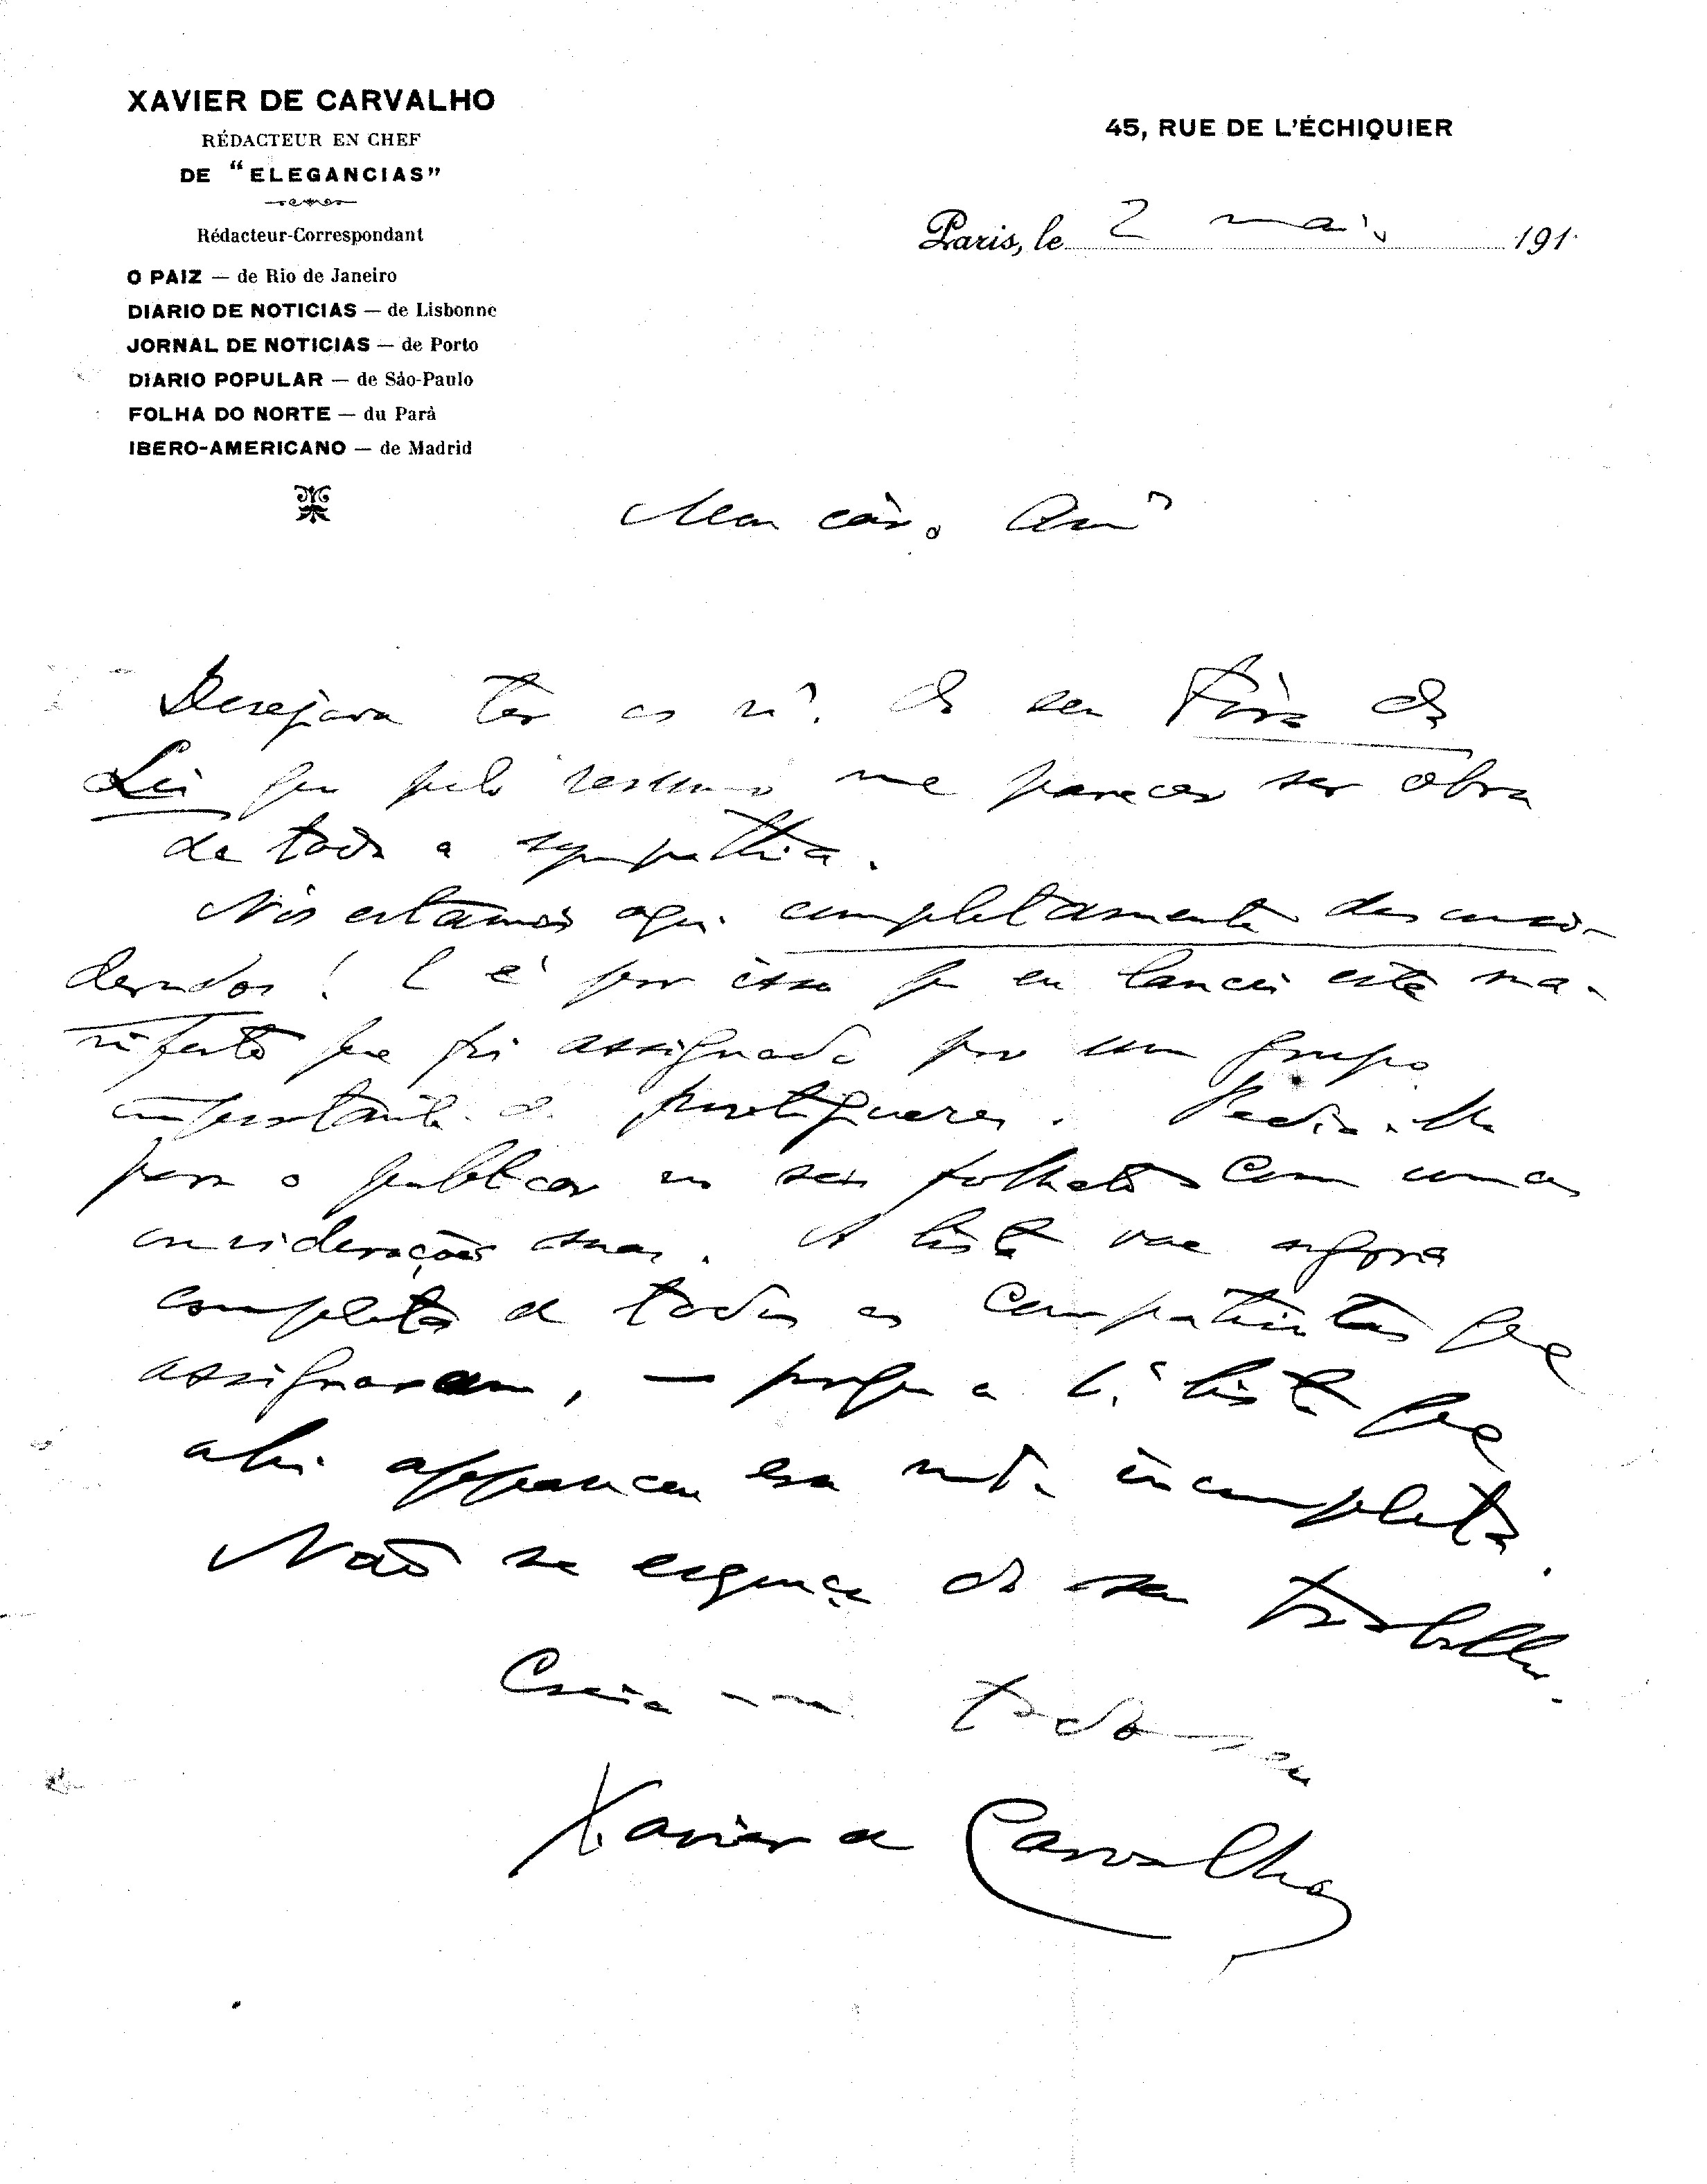 XAVIER DE CARVALHO
RÉDACTEUR EN CHEF
DE "ELEGANCIAS"
Rédacteur-Correspondant
O PAIZ — de Rio de Janeiro
DIARIO DE NOTICIAS — de Lisbonne
JORNAL DE NOTICIAS — de Porto
DIARIO POPULAR — de São-Paulo
FOLHA DO NORTE — du Parà
IBERO-AMERICANO — de Madrid
45, RUE DE L'ÉCHIQUIER
Paris, le 2 maio 191
Meu caro Amº
Desejava ter os nº. do seu Fóra da
Lei que pelo resumo me parecem ser obra
de toda a sympathia.
Nós estamos aqui completamente desconsi-
derados! E é por isso que eu lancei este ma-
nifesto que foi assignado por um grupo
importante de portuguezes. Pedia-lhe
para o publicar no seu folheto com umas
considerações suas. A lista vae agora
completa de todos os compatriotas que
assignaram, — porque a 1.ª lista que
ahi appareceu era muito incompleta.
Não se esqueça do seu trabalho.
Creia-me todo seu
Xavier de Carvalho